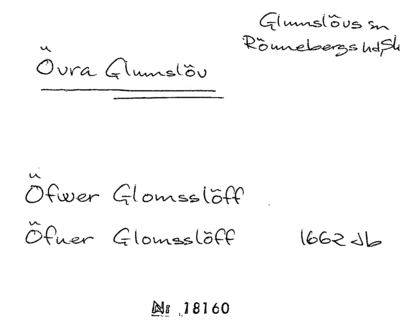 Glumslövs sn
Rönnebergs hd, Sk
Övra Glumslöv
Öfwer Glomsslöff
Öfuer Glomsslöff 1662 Jb
Nr 18160